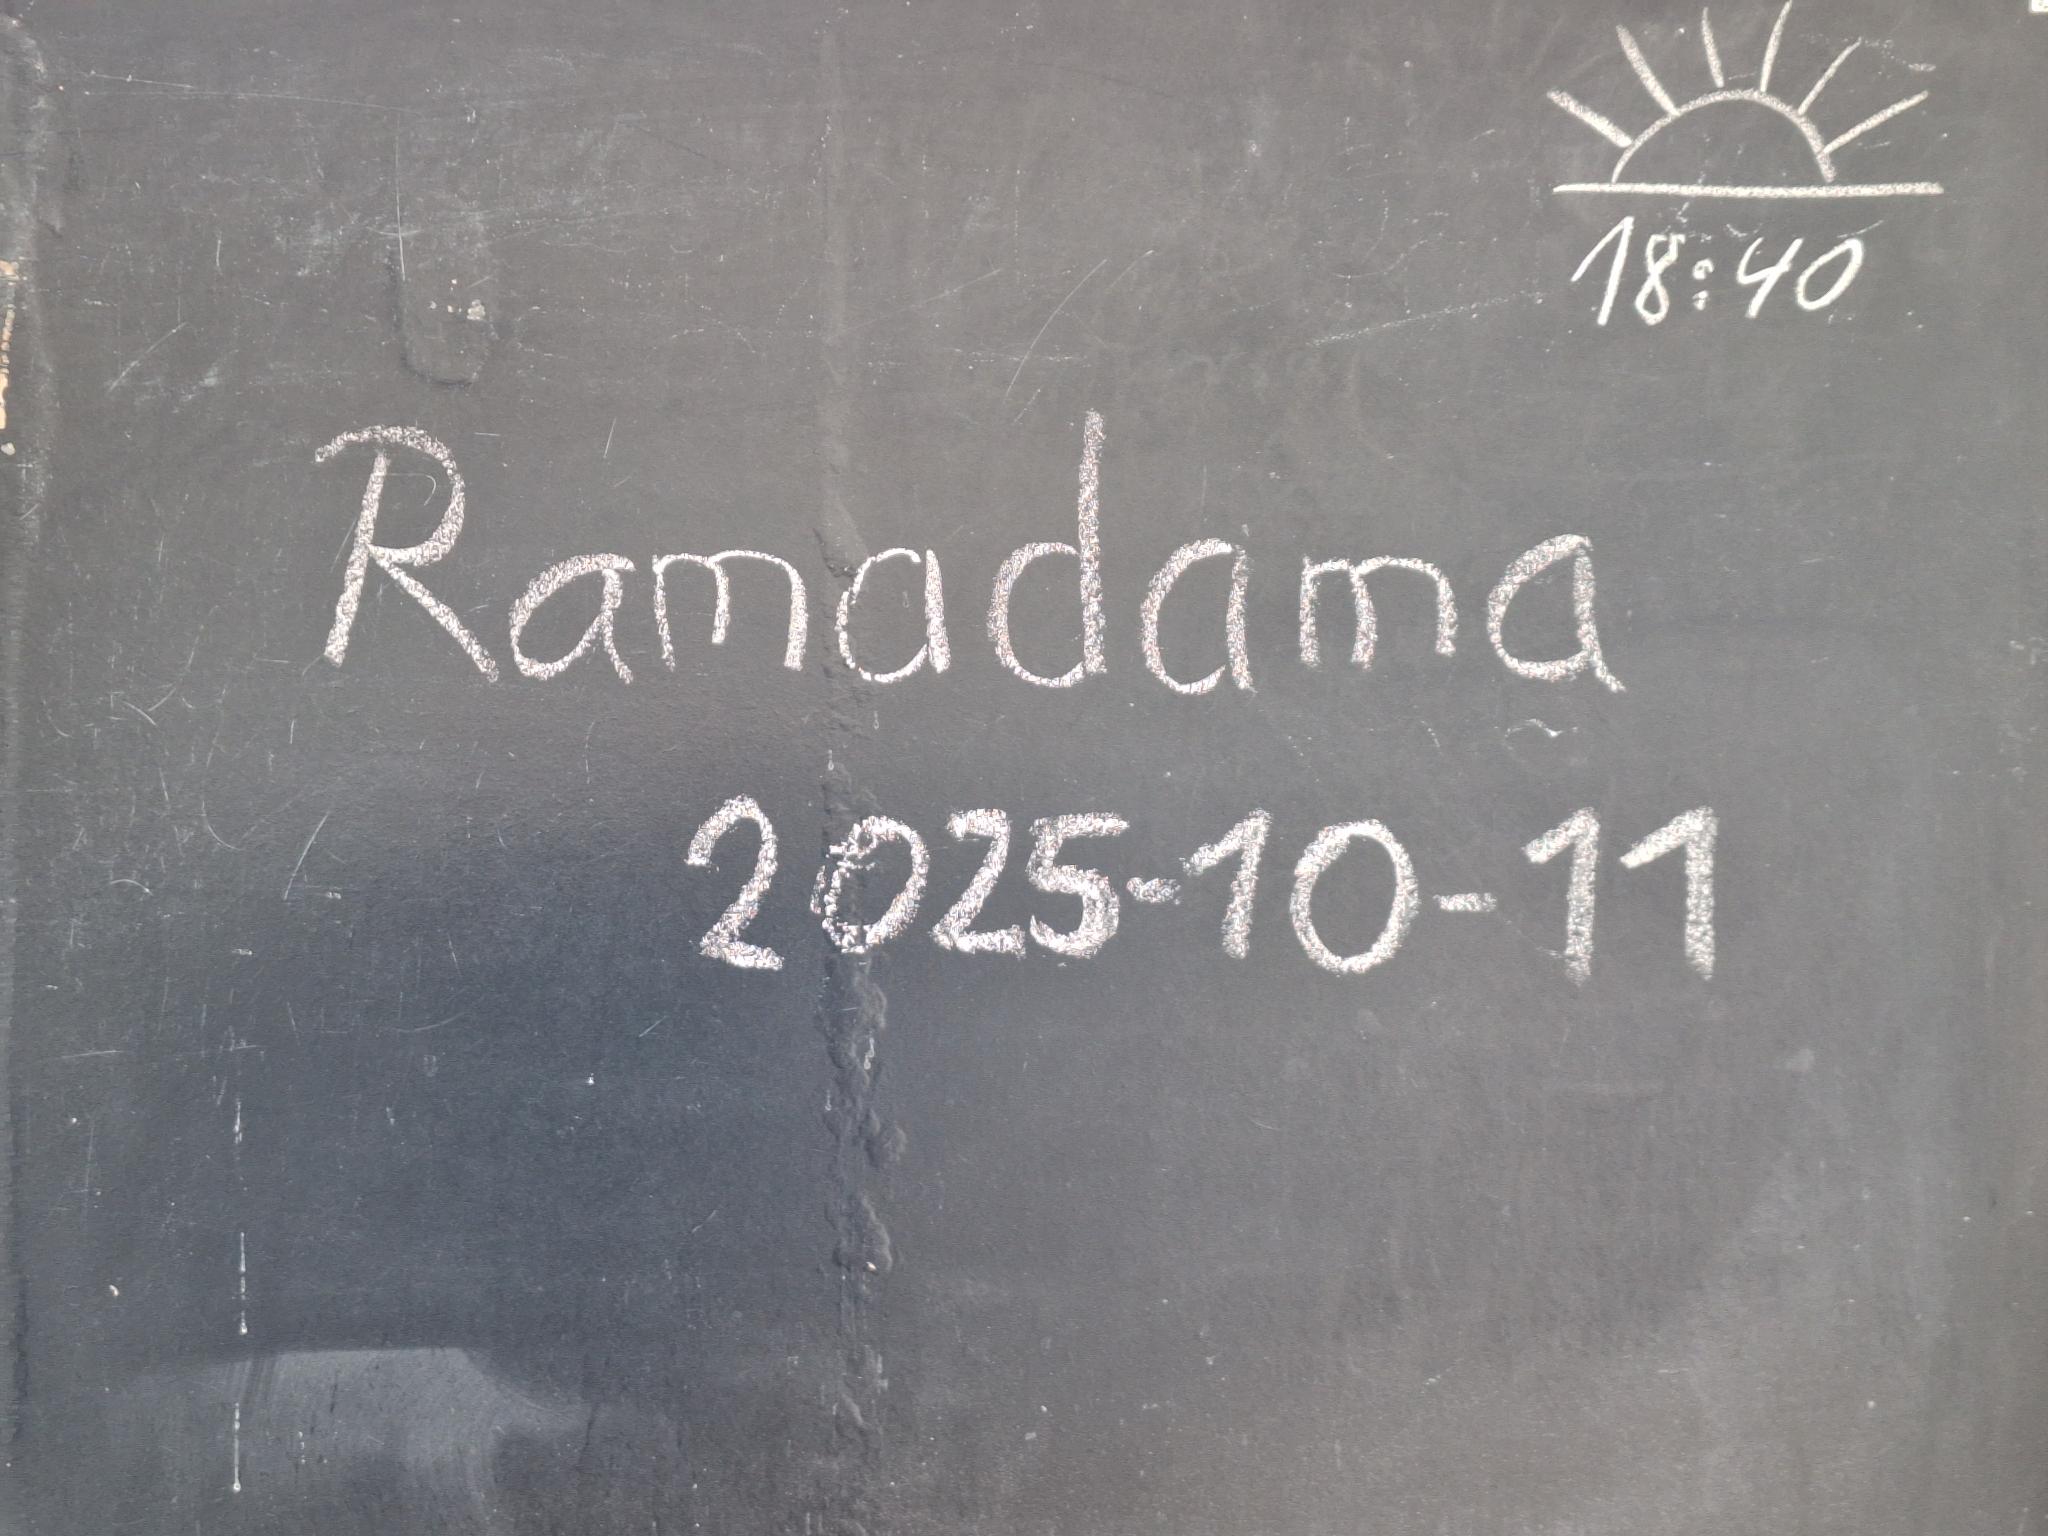 18:40
Ramadama
2025-10-11